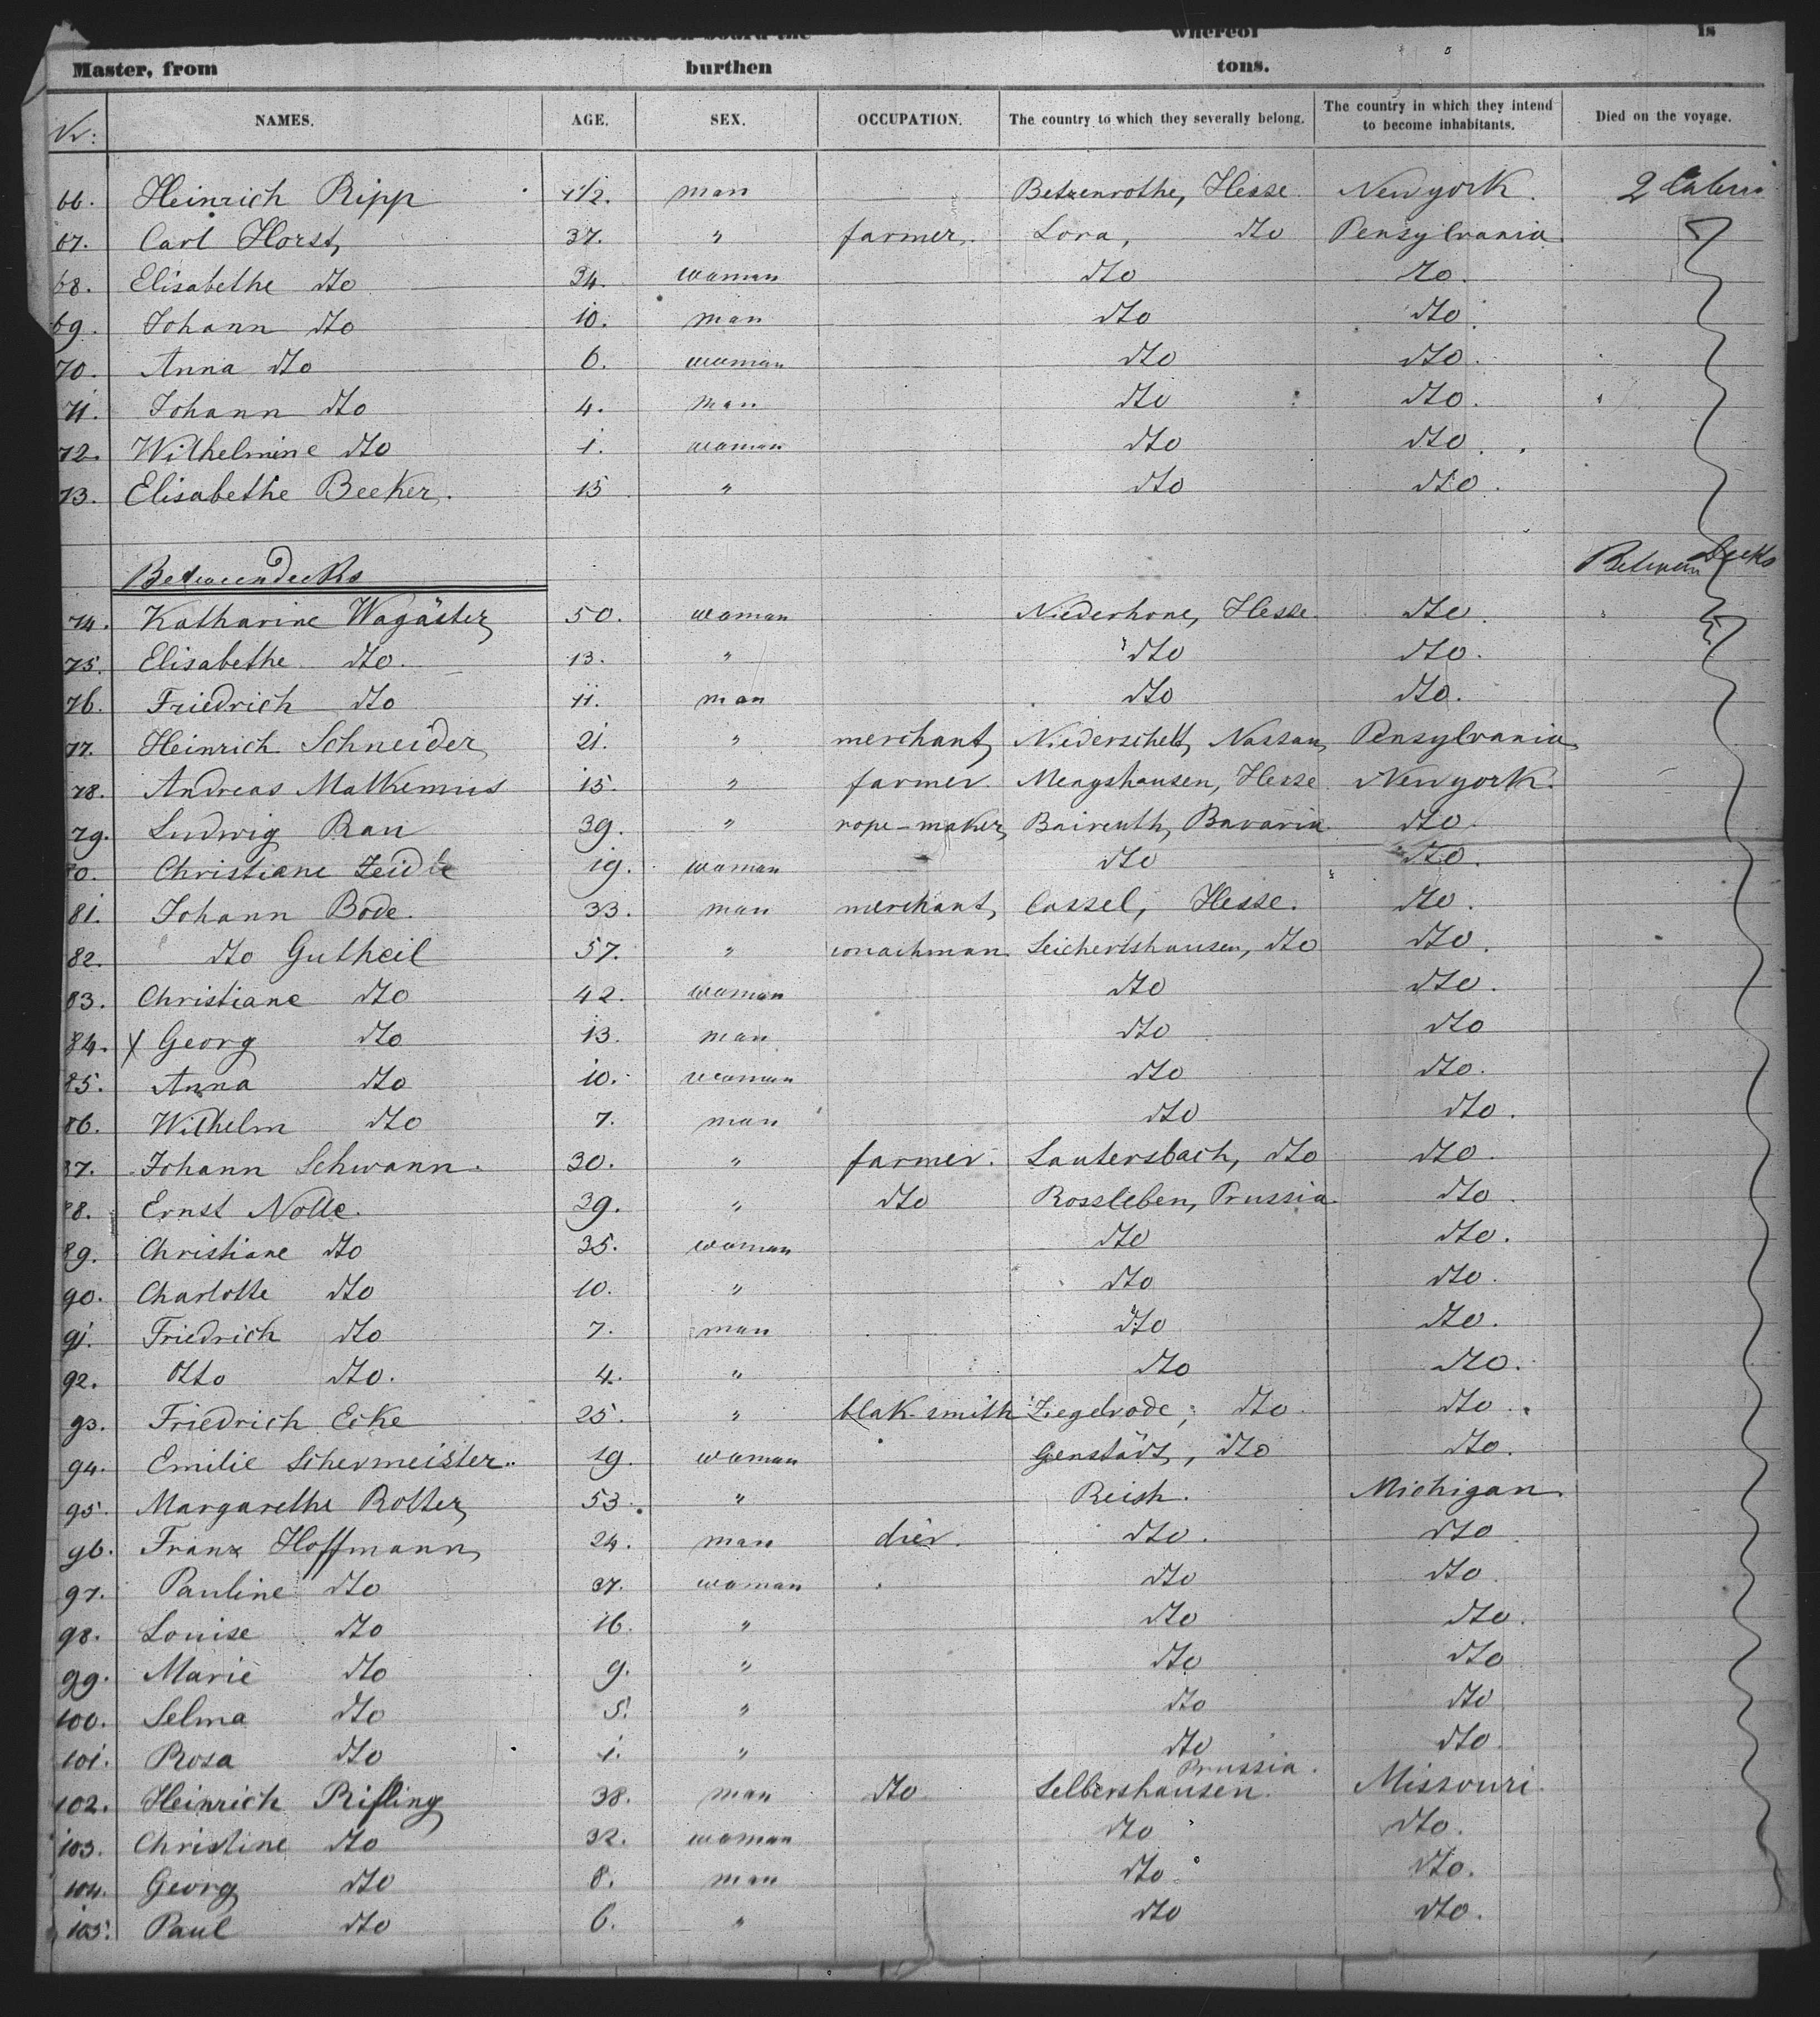 whereof is
Master, from burthen tons.
Nr: NAMES. AGE. SEX. OCCUPATION. The country to which they severally belong. The country in which they intend to become inhabitants. Died on the voyage.
66. Heinrich Ripp 1 1/2. man Betzenrothe, Hesse Newyork.
67. Carl Horst, 37. " farmer. Lora, dto Pensylvania.
68. Elisabethe dto 34. woman dto do.
69. Johann dto 10. man dto dto.
70. Anna dto 6. woman dto dto.
71. Johann dto 4. man dto dto.
72. Wilhelmine dto 1. woman dto dto.
73. Elisabethe Becker. 15 " dto dto.
Betweendecks Between Decks
74. Katharine Wagäster, 50. woman Niederhone, Hesse. dto.
75. Elisabethe dto. 13. " dto dto.
76. Friedrich dto 11. man dto dto.
77. Heinrich Schneider, 21. " merchant, Niederscheld, Nassau, Pensylvania.
78. Andreas Mathemius 15. " farmer. Mengshausen, Hesse. Newyork.
79. Ludwig Rau 39. " rope-maker, Baireuth, Bavaria. dto.
80. Christiane Zeidle 19. woman dto dto.
81. Johann Bode. 33. man merchant, Cassel, Hesse. dto.
82. dto Gutheil 57. " Seichertshausen, dto dto.
83. Christiane dto 42. woman dto dto.
84. X Georg dto 13. man dto dto
85. Anna dto 10. woman dto dto.
86. Wilhelm dto 7. man dto dto.
87. Johann Schwann. 30. " farmer. Lautersbach, dto dto.
88. Ernst Nolte. 39. " dto Rossleben, Prussia. dto.
89. Christiane dto 35. woman dto dto.
90. Charlotte dto 10. " dto dto.
91. Friedrich dto 7. man dto dto.
92. Otto dto. 4. " dto dto.
93. Friedrich Ecke 25. " blak-smith Ziegelrode, dto dto.
94. Emilie Schermeister. 19. woman Genstädt, dto dto.
95. Margarethe Rotter, 53. " Reish. Michigan.
96. Franz Hoffmann, 24. man dier. dto. dto
97. Pauline dto 37. woman dto dto
98. Louise dto 16. " dto dto.
99. Marie dto 9. " dto dto
100. Selma dto 5. " dto dto
101. Rosa dto 1. " dto dto.
102. Heinrich Rifling 38. man dto Selbershausen. Prussia. Missouri.
103. Christine dto 32. woman dto dto.
104. Georg dto 8. man dto dto.
105. Paul dto 6. " dto dto.